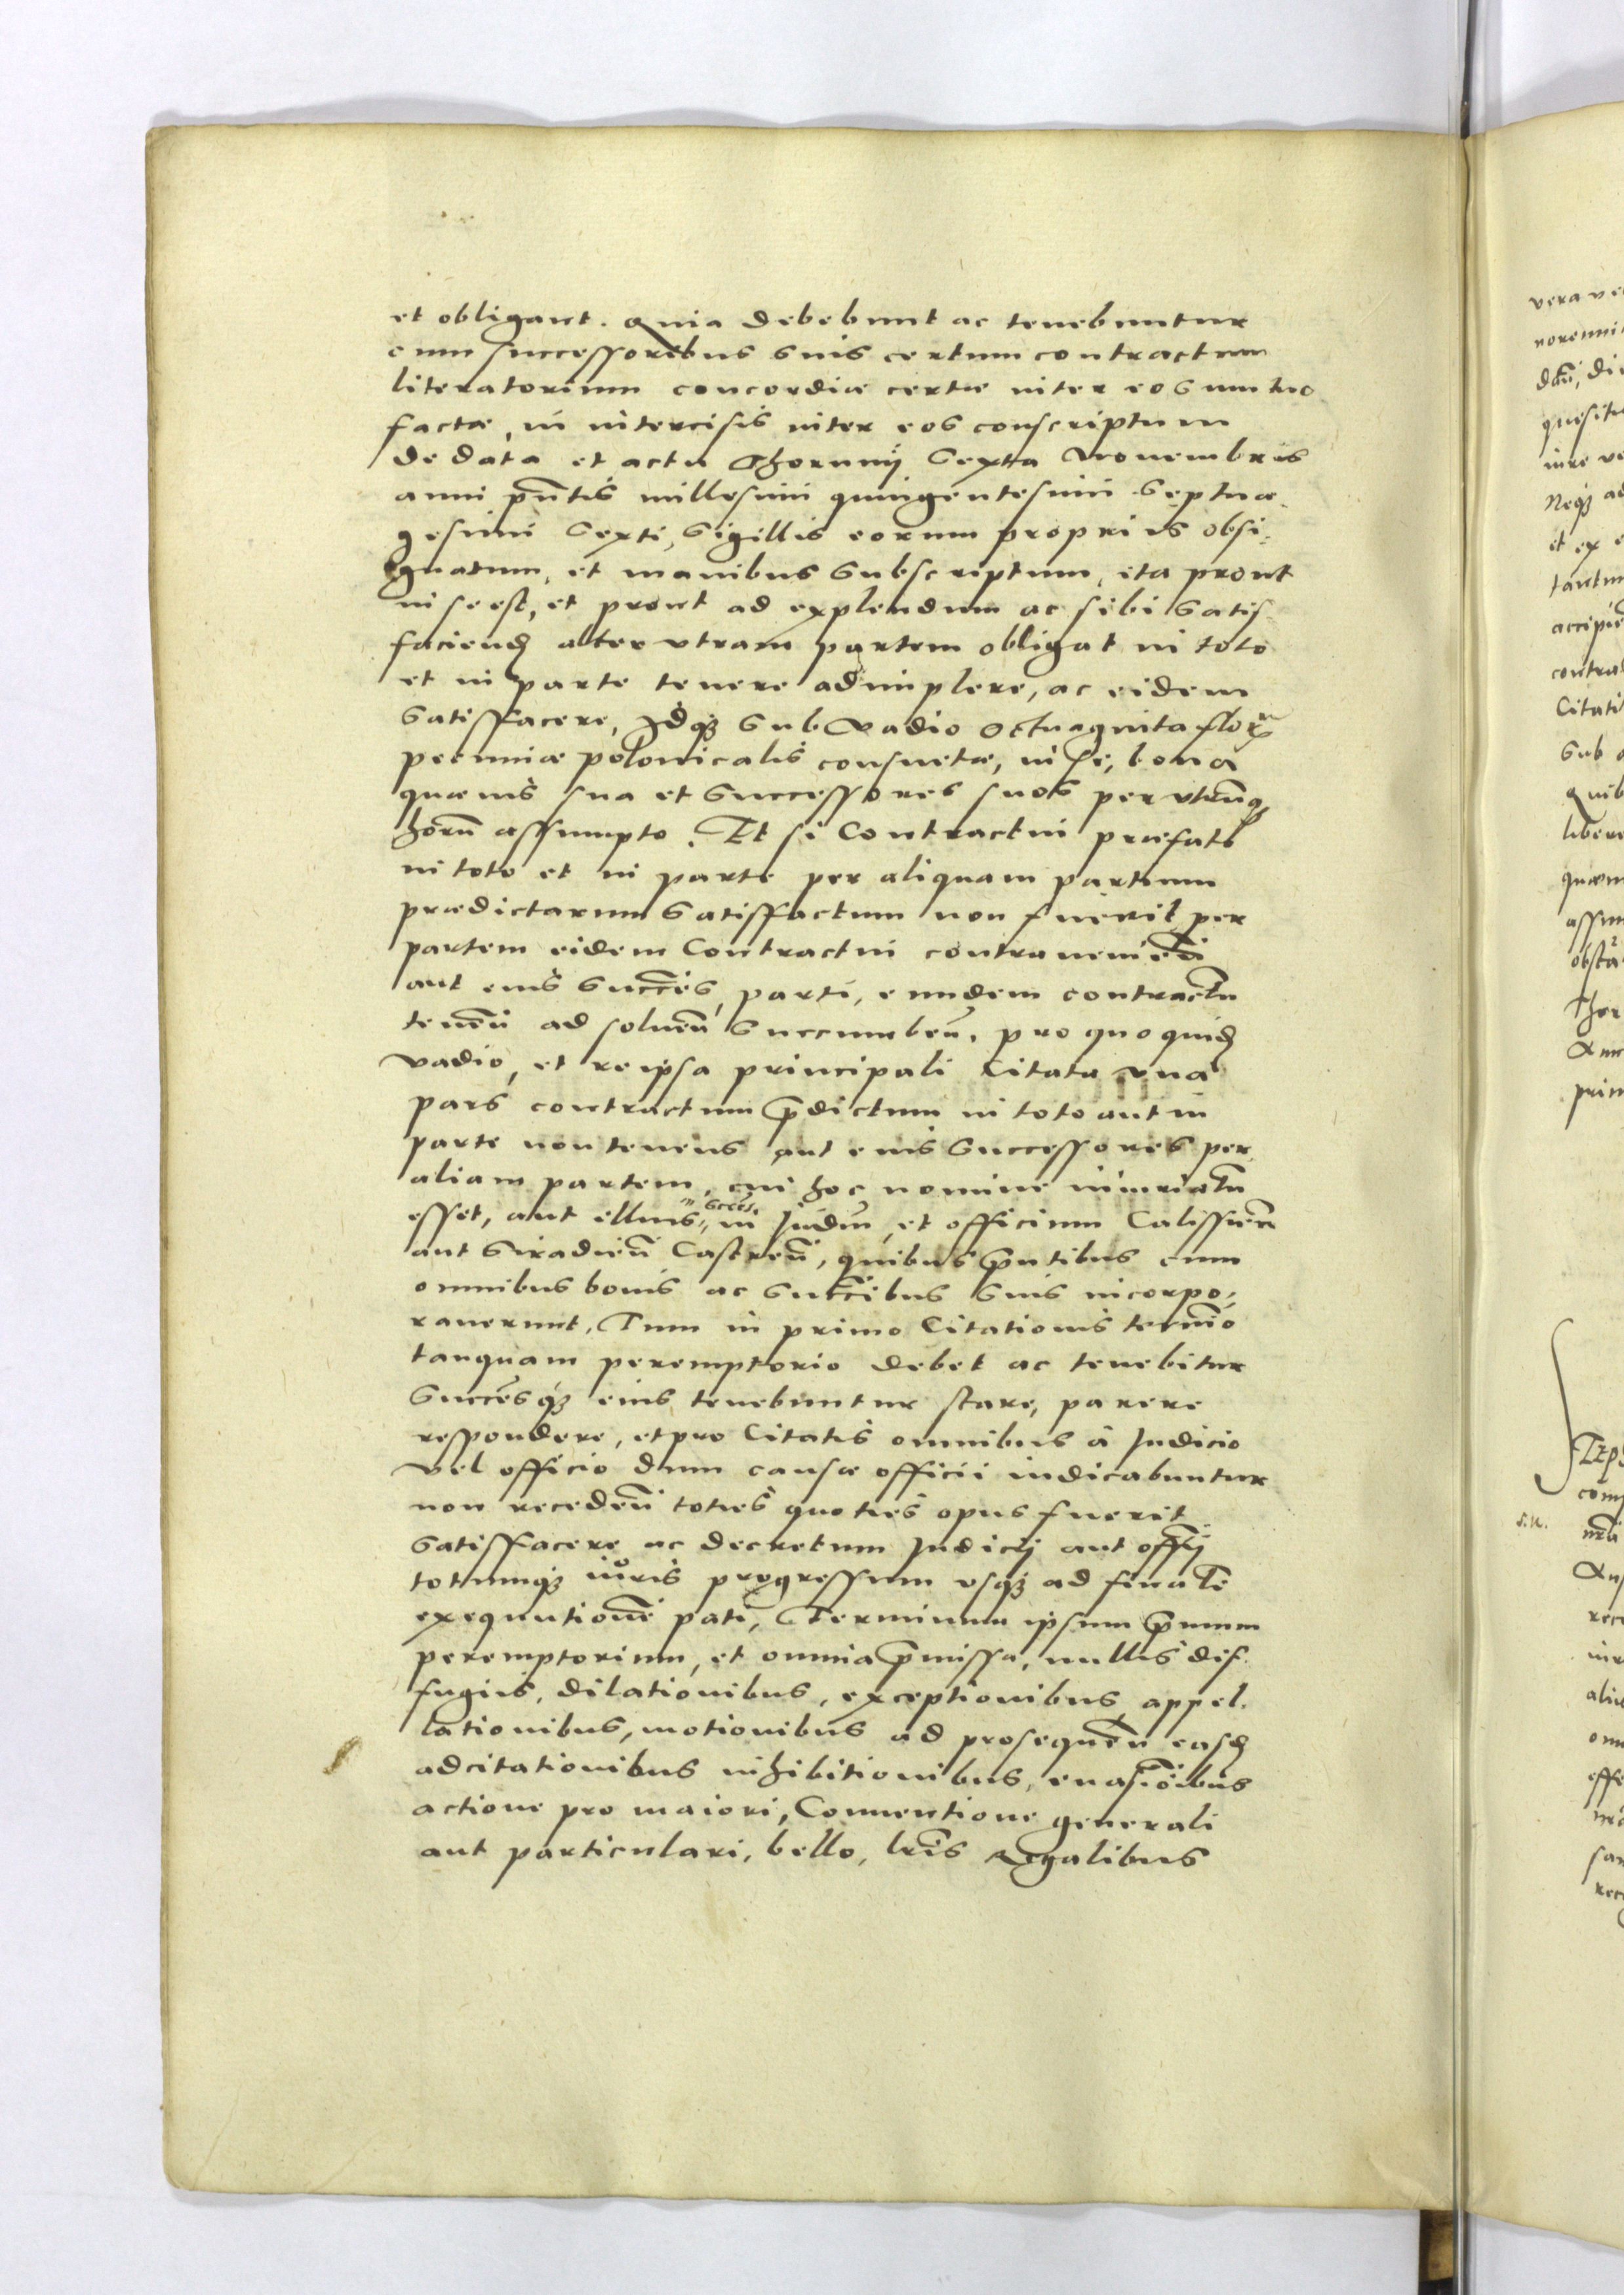 et obligant. Quia debebunt ac tenebuntur
cum successoribus suis certum contractum
literatorium concordiæ certæ inter eos mutuo
factæ, in intercisis inter eos conscriptum
de data et actu Thorunij Sexta Novembris
anni pn̄tis millesimi quingentesimi septua
gesimi Sexti, Sigillis eorum proprijs obsi:
gnatum, et manibus subscriptum, ita prout
in se est, et prout ad explendum ac sibi satis
faciend alter utram partem obligat in toto
et in parte tenere adimplere, ac eidem
satisffacere, Idq3 sub vadio octuaginta flor
pecuniæ polonicalis consuetæ, in se, bona
quævis sua et Successores suos per utrūq3
horū assumpto. Et si Contractui præfato
in toto et in parte per aliquam partium
prædictarum satisffactum non fuerit per
partem eidem Contractui contraveniēn
aut eius Succēs, parti, eundem contractū
tenēn ad solvēn succumbēn, pro quo quid
vadio, et re ipsa principali Citata una
pars contractum p̄dictum in toto aut in
parte non tenens aut eius Successores per
aliam partem, cui hoc nomine iniuriatū
esset, aut illius succēs, in Iudiū, et officium Calissiēn
aut Siradiēn Castrēn, quibus p̄ntibus cum
omnibus bonis ac Succībus suis incorpo:
raverunt, Tum in primo Citationis termīo
tanquam peremptorio debet ac tenebitur
Succēsq3 eius tenebuntur stare, parere
respondere, et pro Citatis omnibus à Iudicio
vel officio dum causæ officii iudicabuntur
non recedēn toties quoties opus fuerit
satisffacere ac decretum Iudicij aut offīj
totumq3 iuris progressum usq3 ad finalē
exequutionē pati, Terminum ipsum p̄mum
peremptorium, et omnia p̄missa, nullis dif
fugijs, dilationibus, exceptionibus appel
lationibus, motionibus ad prosequēn easd
adcitationibus inhibitionibus, evasiōibus
actione pro maiori, Conventione generali
aut particulari, bello, lrīs Regalibus